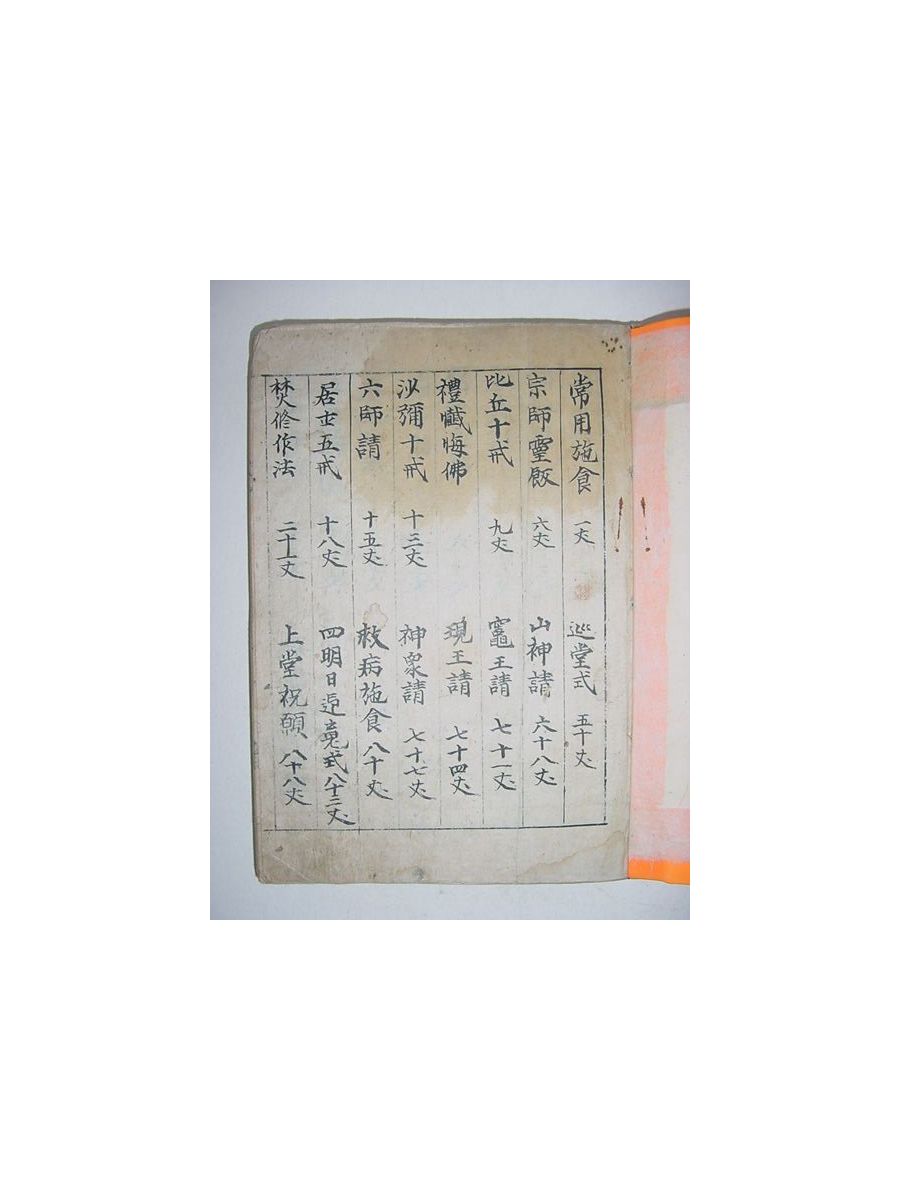 常用施食 一丈 巡堂式 五十丈
宗師霊飯 六丈 山神請 六十八丈
比丘十戒 九丈 竈王請 七十一丈
禮懺悔佛 現王請 七十四丈
沙彌十戒 十三丈 神衆請 七十七丈
六師請 十五丈 救病施食 八十丈
居士五戒 十八丈 四明日迎䰟式 八十三丈
焚修作法 二十一丈 上堂祝願 八十八丈